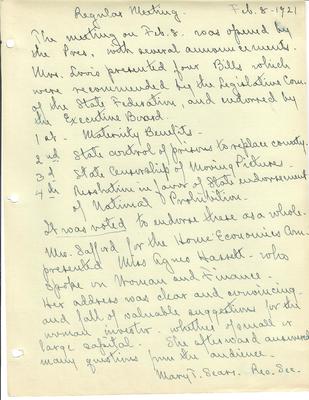 Regular Meeting. Feb. 8-1921
The meeting on Feb. 8. was opened by
the Pres. with several announcements.
Mrs. presented four Bills which
were recommended by the Legislative Com.
of the State Federation, and endorsed by
the Executive Board.
1st. Maternity Benefits -
2nd State control of prisons to replace county.
3d State Censorship of Moving Pictures.
4th Resolution in favor of State endorsement
of National Prohibition.
It was voted to endorse these as a whole.
Mrs. Safford for the Home Economics Com.
presented Miss Agnes Hassett - who
spoke on Woman and Finance.
Her address was clear and convincing
and full of valuable suggestions for the
woman investor - whether of small or
large capital. She afterward answered
many questions from the audience.
Mary T. Sears. Rec. Sec.